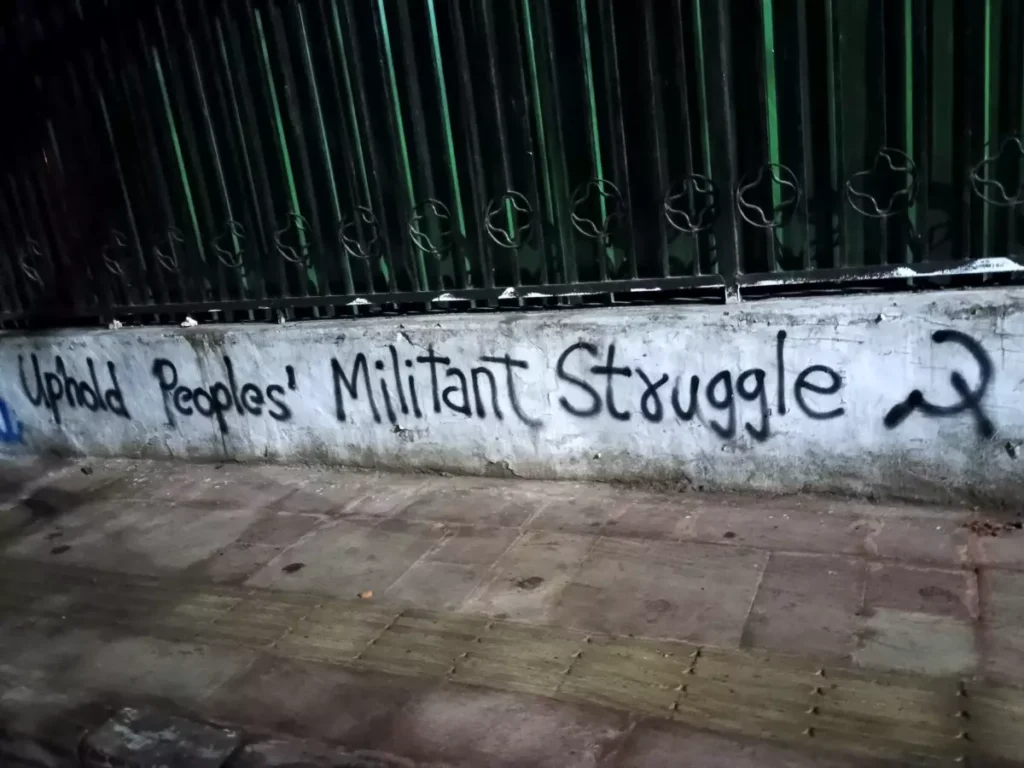 Uphold Peoples' Militant Struggle